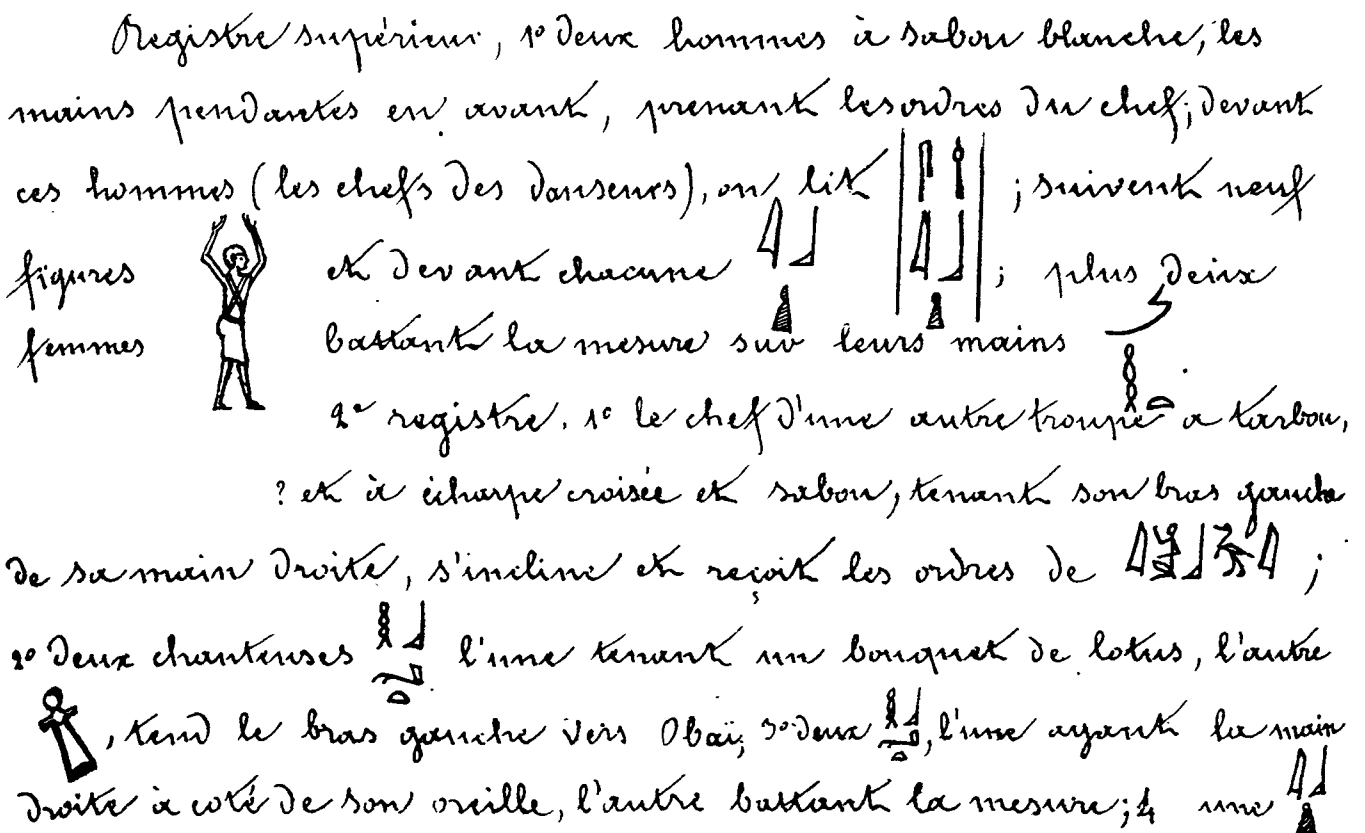 Registre supérieur, 1º deux hommes à sabou blanche, les
mains pendantes en avant, prenant les ordres du chef; devant
ces hommes (les chefs des danseurs), on lit ; suivent neuf
figures et devant chacune ; plus deux
femmes battant la mesure sur leurs mains
2e registre. 1º le chef d'une autre troupe a tarbou,
? et à écharpe croisée et sabou, tenant son bras gauche
de sa main droite, s'incline et reçoit les ordres de ;
2º deux chanteuses l'une tenant un bouquet de lotus, l'autre
, tend le bras gauche vers Obaï; 3º deux , l'une ayant la main
droite à coté de son oreille, l'autre battant la mesure; 4 une